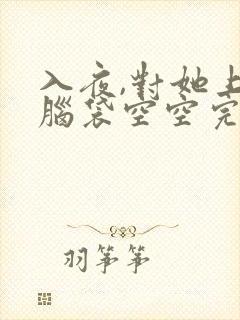 入夜,對她上
腦袋空空完
羽箏箏